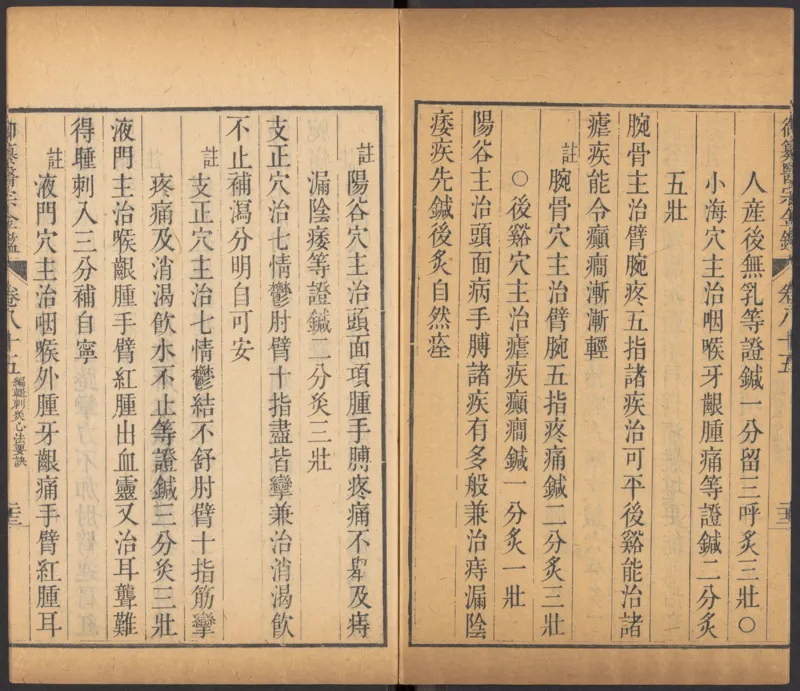 人産後無乳等證鍼一分留三呼炙三壯○
小海穴主治咽喉牙齦腫痛等證鍼二分炙
五壯
腕骨主治臂腕疼五指諸疾治可平後谿能治諸
瘧疾能令癲癇漸漸輕
註腕骨穴主治臂腕五指疼痛鍼二分炙三壯
○後谿穴主治瘧疾癲癇鍼一分炙一壯
陽谷主治頭面病手膊諸疾有多般兼治痔漏陰
痿疾先鍼後炙自然痊
御纂醫宗金鑑 卷八十五
註陽谷穴主治頭面項腫手膊疼痛不舉及痔
漏陰痿等證鍼二分炙三壯
支正穴治七情鬱肘臂十指盡皆攣兼治消渴飲
不止補瀉分明自可安
註支正穴主治七情鬱結不舒肘臂十指筋攣
疼痛及消渴飲水不止等證鍼三分炙三壯
液門主治喉齦腫手臂紅腫出血靈又治耳聾難
得睡刺入三分補自寧
註液門穴主治咽喉外腫牙齦痛手臂紅腫耳
御纂醫宗金鑑 卷八十五 編輯刺灸心法要訣